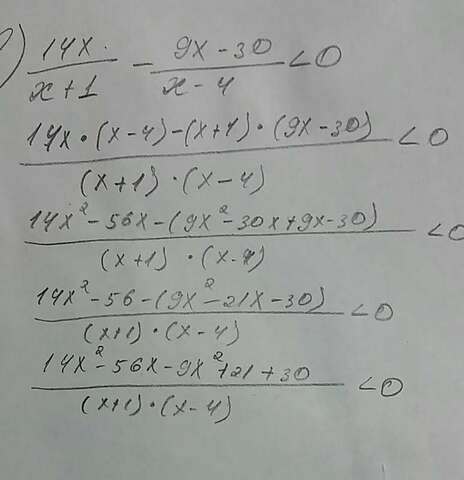 ) 14x/(x+1) - (9x-30)/(x-4) <0
(14x·(x-4)-(x+1)·(9x-30))/((x+1)·(x-4)) <0
(14x²-56x-(9x²-30x+9x-30))/((x+1)·(x-4)) <0
(14x²-56-(9x²-21x-30))/((x+1)·(x-4)) <0
(14x²-56x-9x²+21+30)/((x+1)·(x-4)) <0